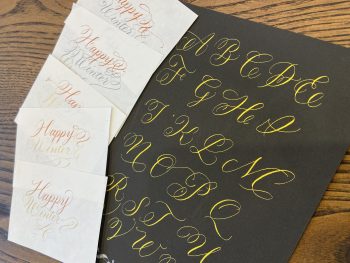 Happy
Winter
Happy
Winter
Happy
Winter
Happy
Winter
A B C D E
F G H I
J K L M
N O P Q
R S T U
V W